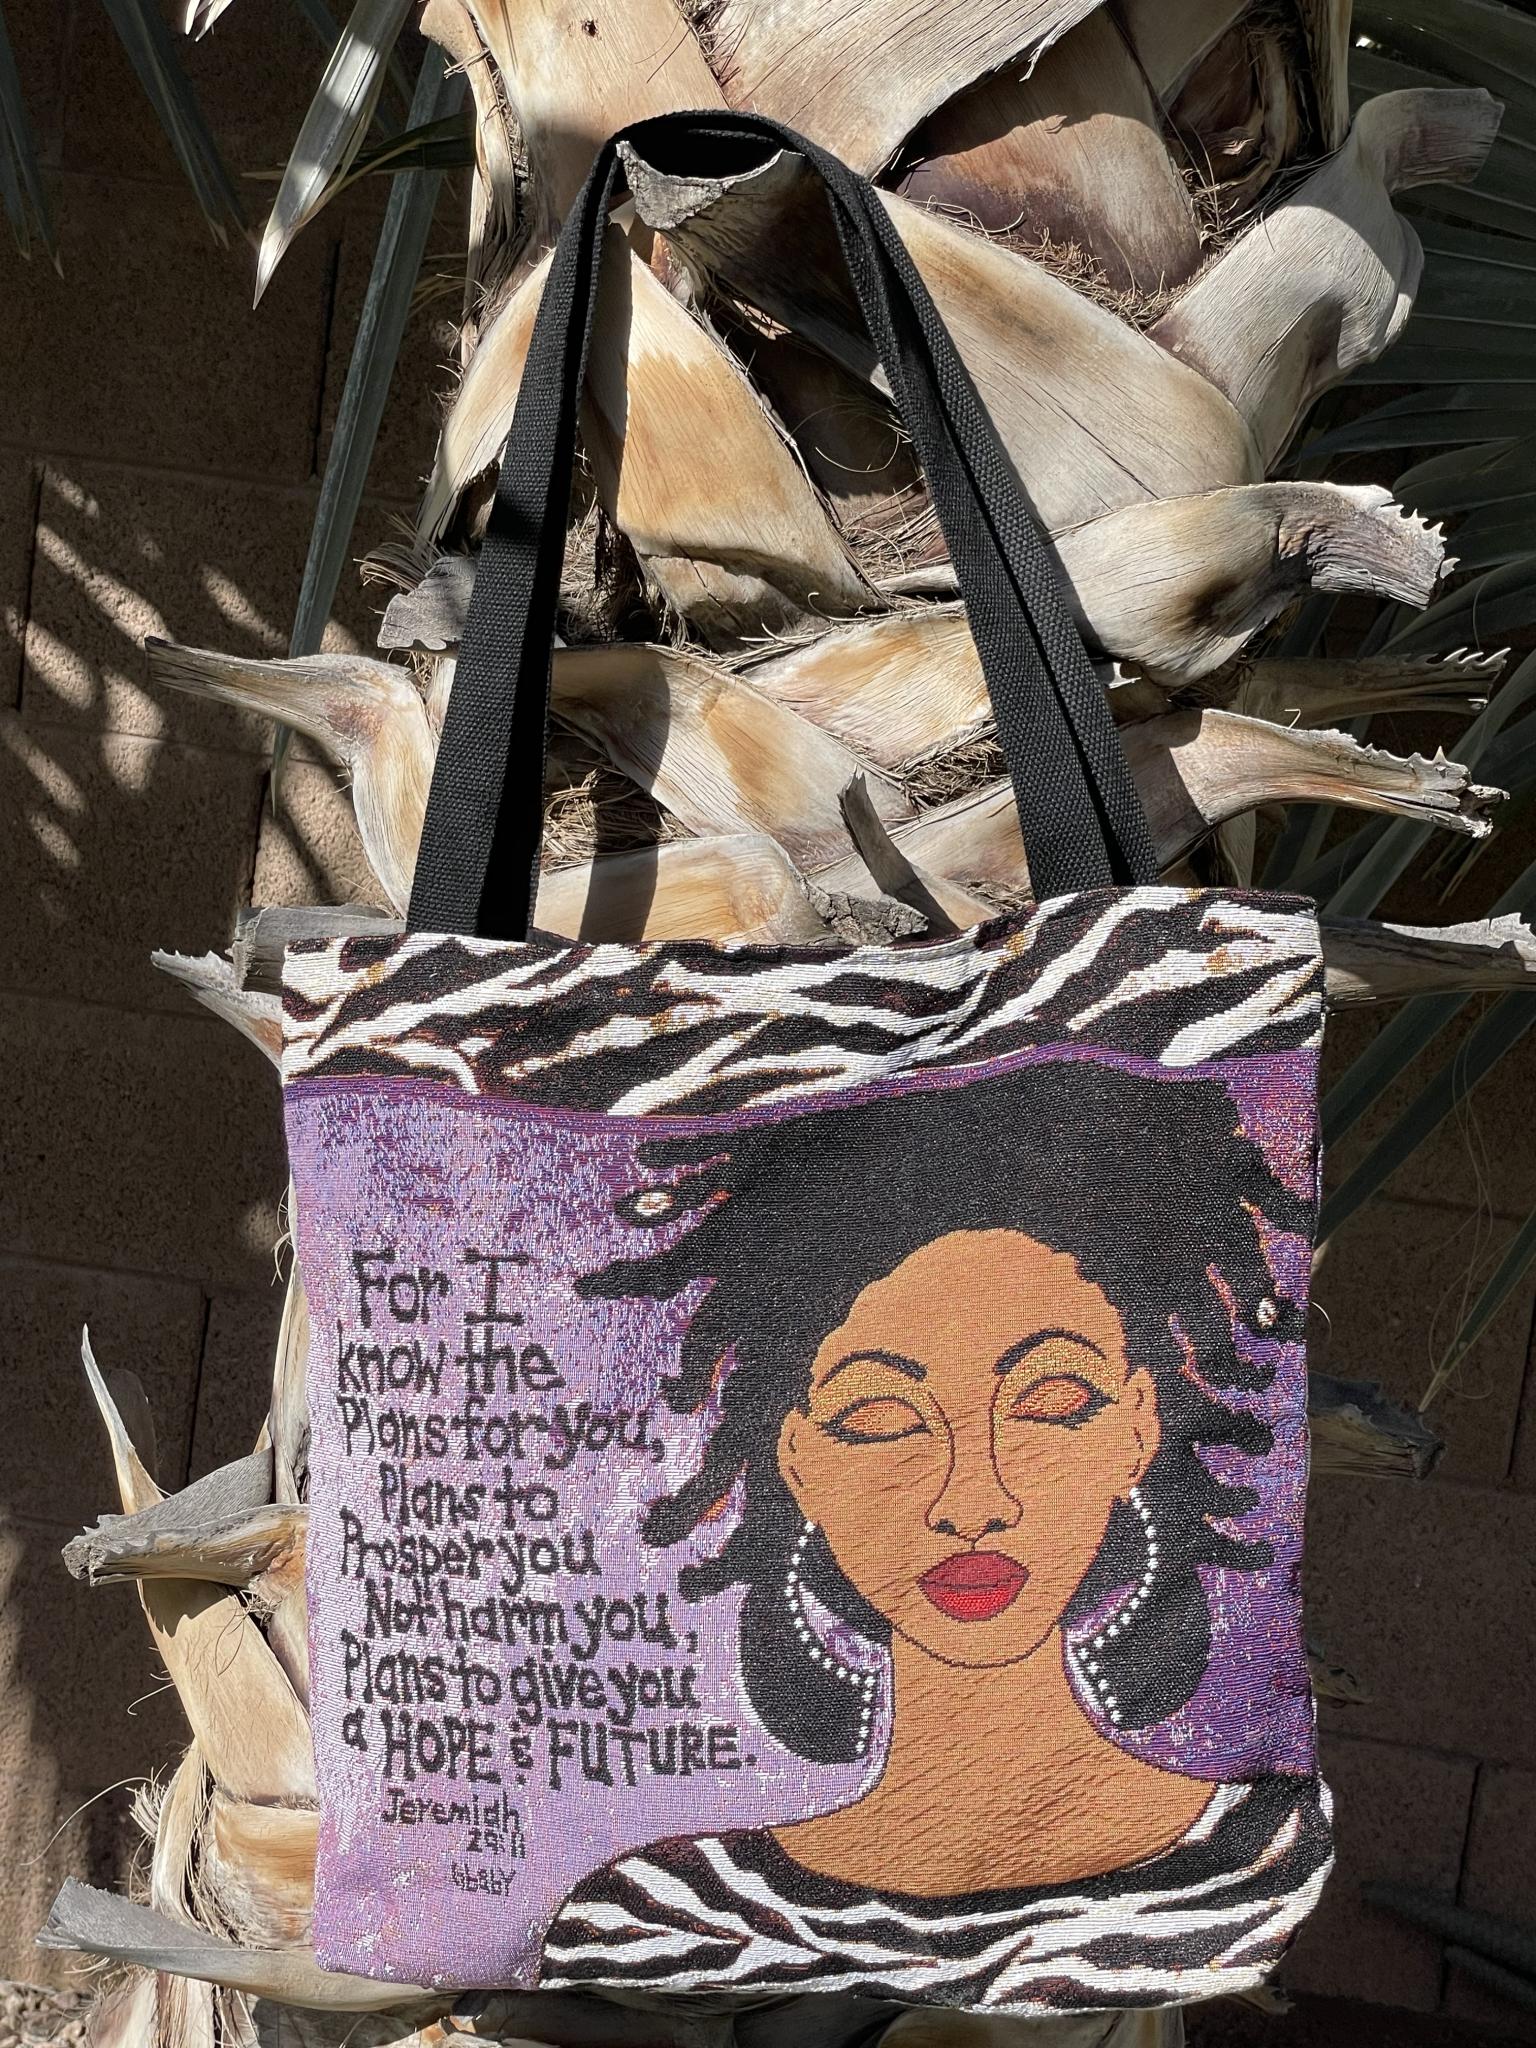 For I
know the
Plans for you,
Plans to
Prosper you
Not harm you,
Plans to give you
a HOPE & FUTURE.
Jeremiah
29:11
GBaby